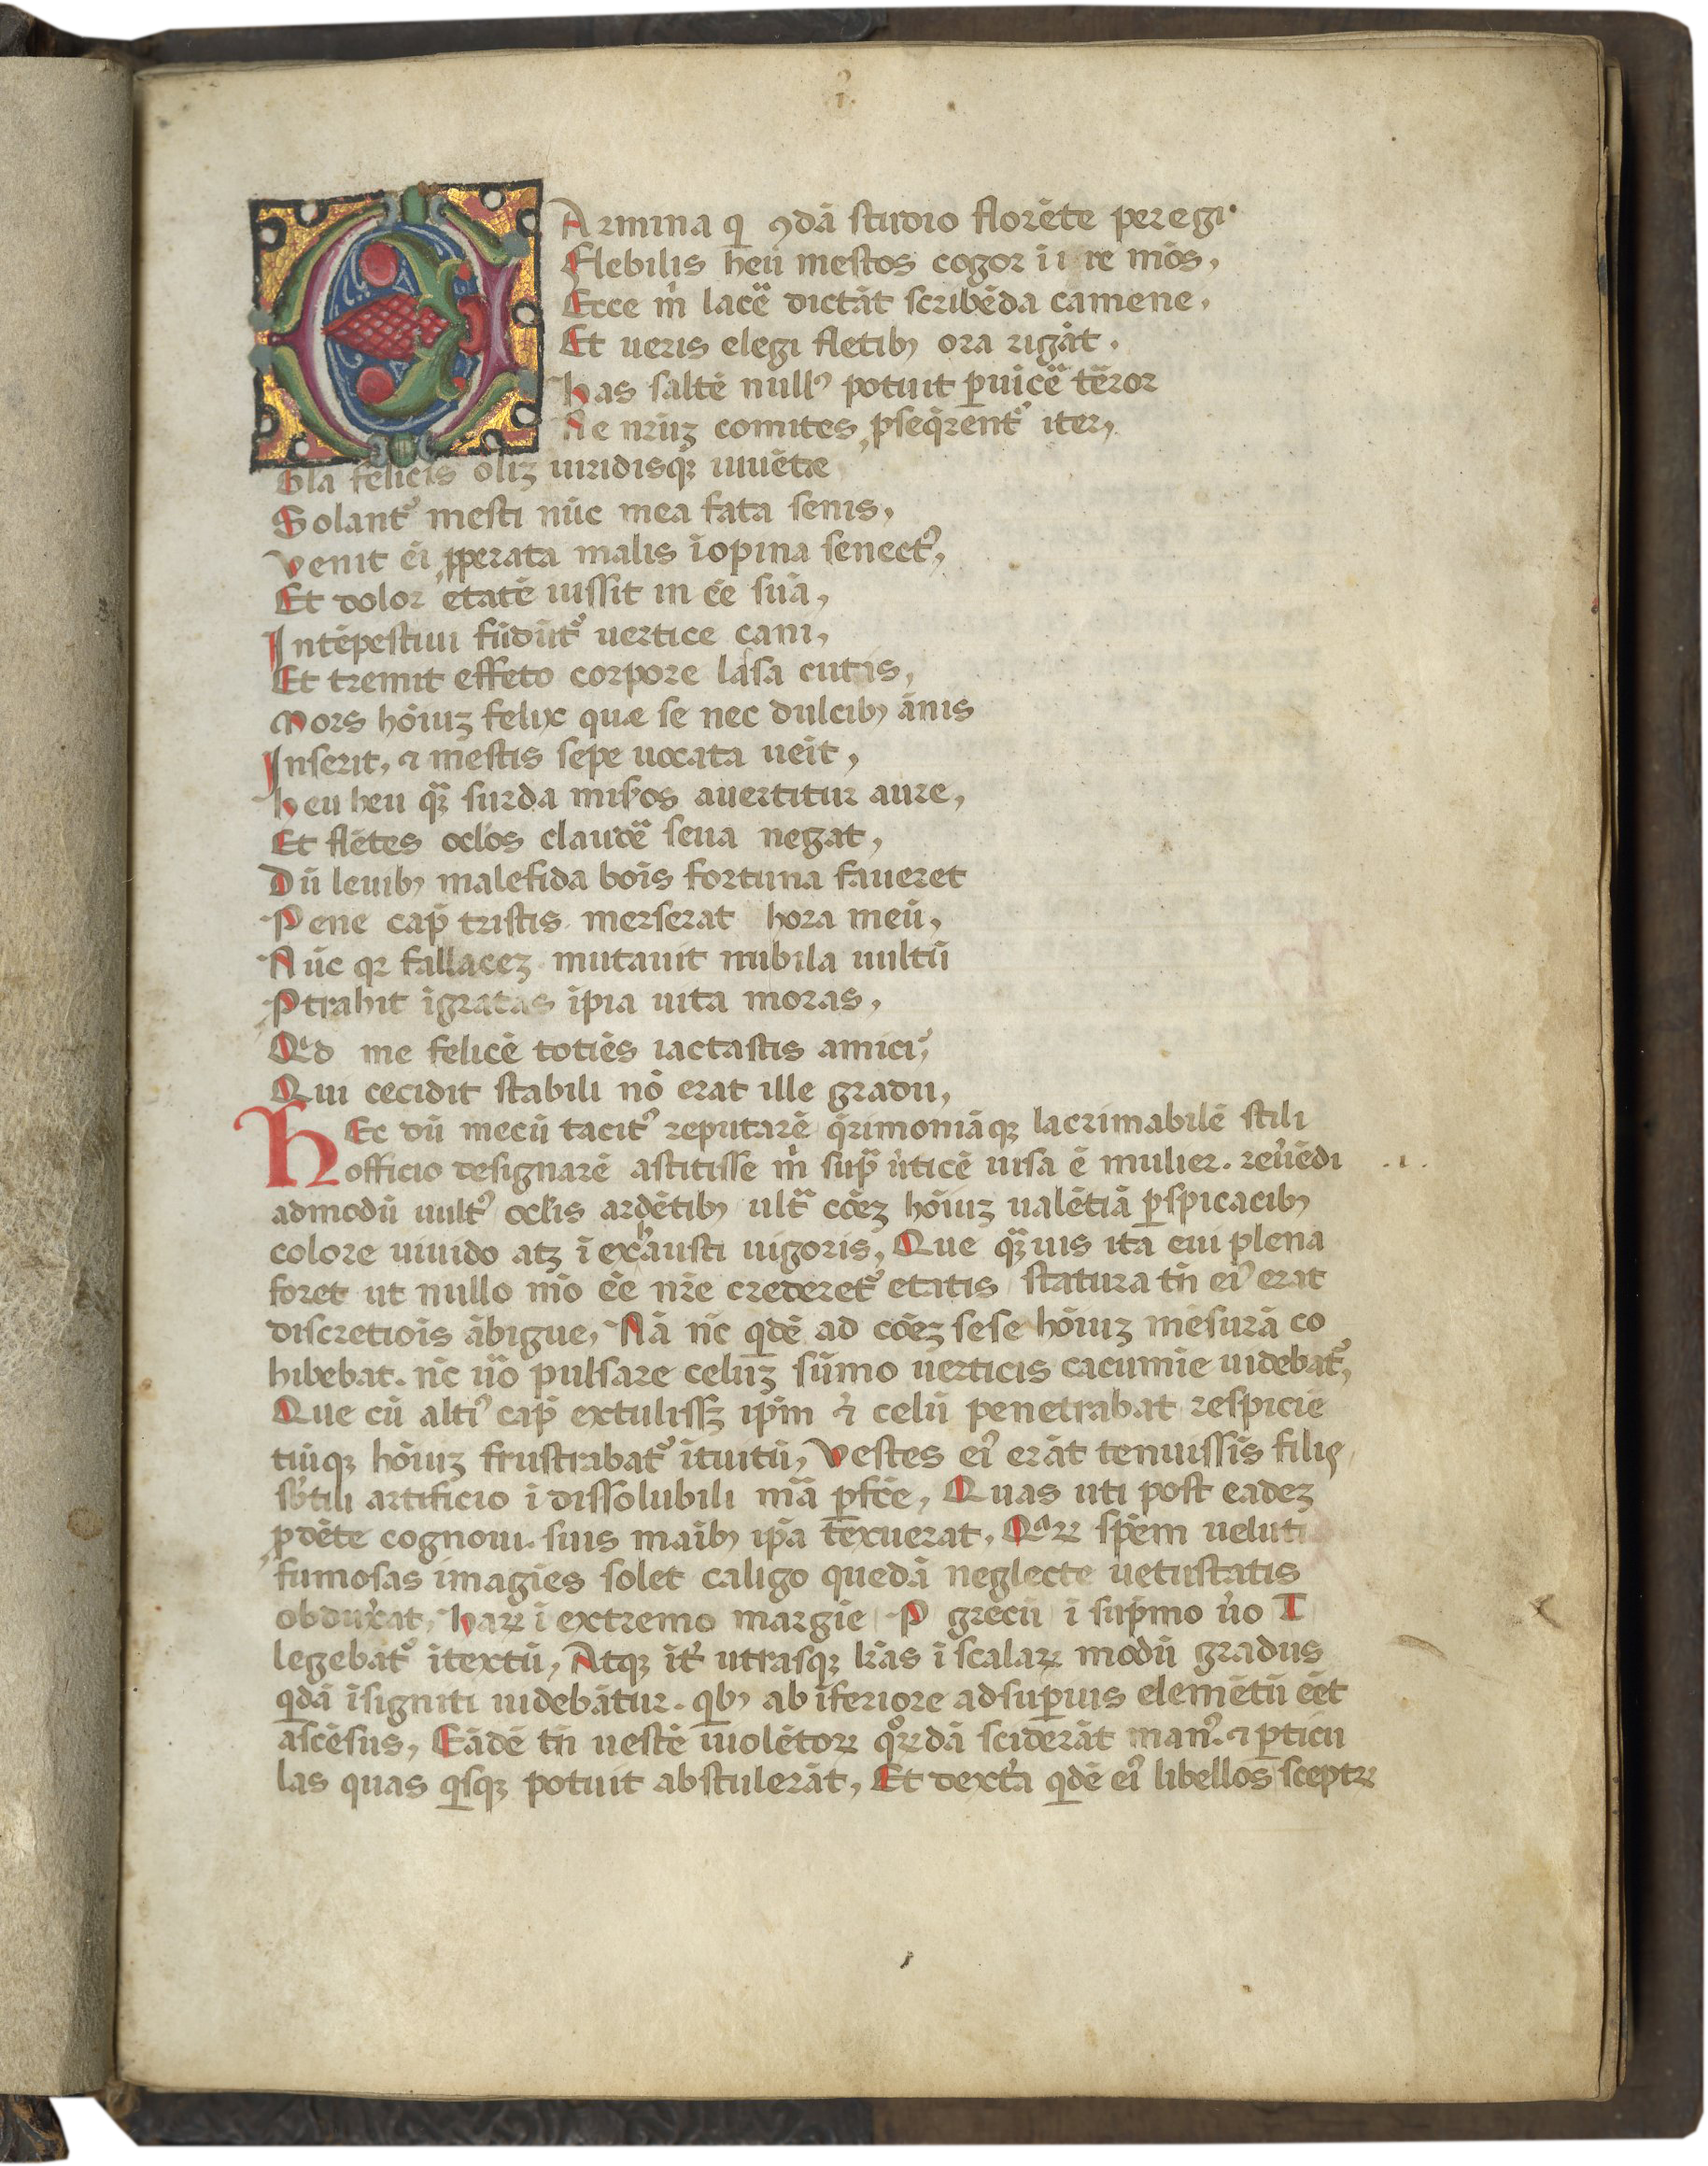 CArmina q̄ ꝯdā studio florēte peregi·
Flebilis heu mestos cogor i re mōs,
Ecce m̄ lacē dictāt scribēda camene,
Et ueris elegi fletibꝫ ora rigāt.
has saltē nullꝰ potuit ꝑuīcē tēror
Ne nr̄uꝫ comites ꝓseq̄rentᷣ iter,
Gl̄a felicis oliꝫ uiridisqꝫ iuuēte
Solantᷣ mesti nūc mea fata senis,
Venit ei ꝓperata malis īopina senectꝰ,
Et dolor etatē iussit in ēe suā,
Intēpestiui fūdūtᷣ uertice cani,
Et tremit effeto corpore lasa cutis,
Mors hōiuꝫ felix quæ se nec dulcibꝫ ānis
Inserit, ⁊ mestis sepe uocata ueīt,
heu heu qᷓꝫ surda miẜos auertitur aure,
Et flētes oc̄los claudē seua negat,
Dū leuibꝫ malefida boīs fortuna faueret
Pene cap̄ tristis merserat hora meū,
Nūc qꝛ fallaceꝫ mutauit nubila uultū
Ꝓtrahit īgratas īpia uita moras,
Qͥd me felicē totiēs iactastis amici,
Qui cecidit stabili nō erat ille gradu,
HEc dū mecū tacitꝰ reputarē q̄rimoniāqꝫ lacrimabilē stili
officio designarē astitisse m̄ supᷓ u̓ticē uisa ē mulier. reu̓ēdi .ı.
admodū uultꝰ oclis ardētibꝫ ultᷓ cōeꝫ hōiuꝫ ualētiā ꝑspicacibꝫ
colore uiuido atꝫ īexhausti uigoris, Que qᷓꝫuis ita eui plena
foret ut nullo mō ēe nr̄e crederetᷣ etatis statura tn̄ eiꝰ erat
discretiōis ābigue, Nā nc̄ qͥdē ad cōeꝫ sese hōiuꝫ mēsurā co
hibebat. nc̄ u̓o pulsare celuꝫ sūmo uerticis cacumīe uidebatᷣ,
Que cū altiꝰ cap̄ extulissꝫ ip̄m ⁊ celū penetrabat respiciē
tiūqꝫ hōiuꝫ frustrabatᷣ ītuitū, Vestes eiꝰ erāt tenuissīs filiꝭ
sb̄tili artificio īdissolubili mᷓa ꝑfc̄e, Quas uti post eadeꝫ
ꝓdēte cognoui. suis maībꝫ ip̄a texuerat, Qᷓꝝ spēm ueluti
fumosas imagīes solet caligo quedā neglecte uetustatis
obdux̓at, haꝝ ī extremo margīe P grecū ī sup̄mo u̓o T
legebatᷣ ītextū, Atqꝫ īt̓ utrasqꝫ lr̄as ī scalaꝝ modū gradus
qͥdā īsigniti uidebātur. qͥbꝫ ab īferiore ad suꝑius elemētū eēt
ascēsus, Eādē tn̄ uestē uiolētoꝝ qͦꝝdā sciderāt manꝰ. ⁊ ꝑticu
las quas qͥsqꝫ potuit abstulerāt, Et dext̓a qͥdē eiꝰ libellos sceptꝝ